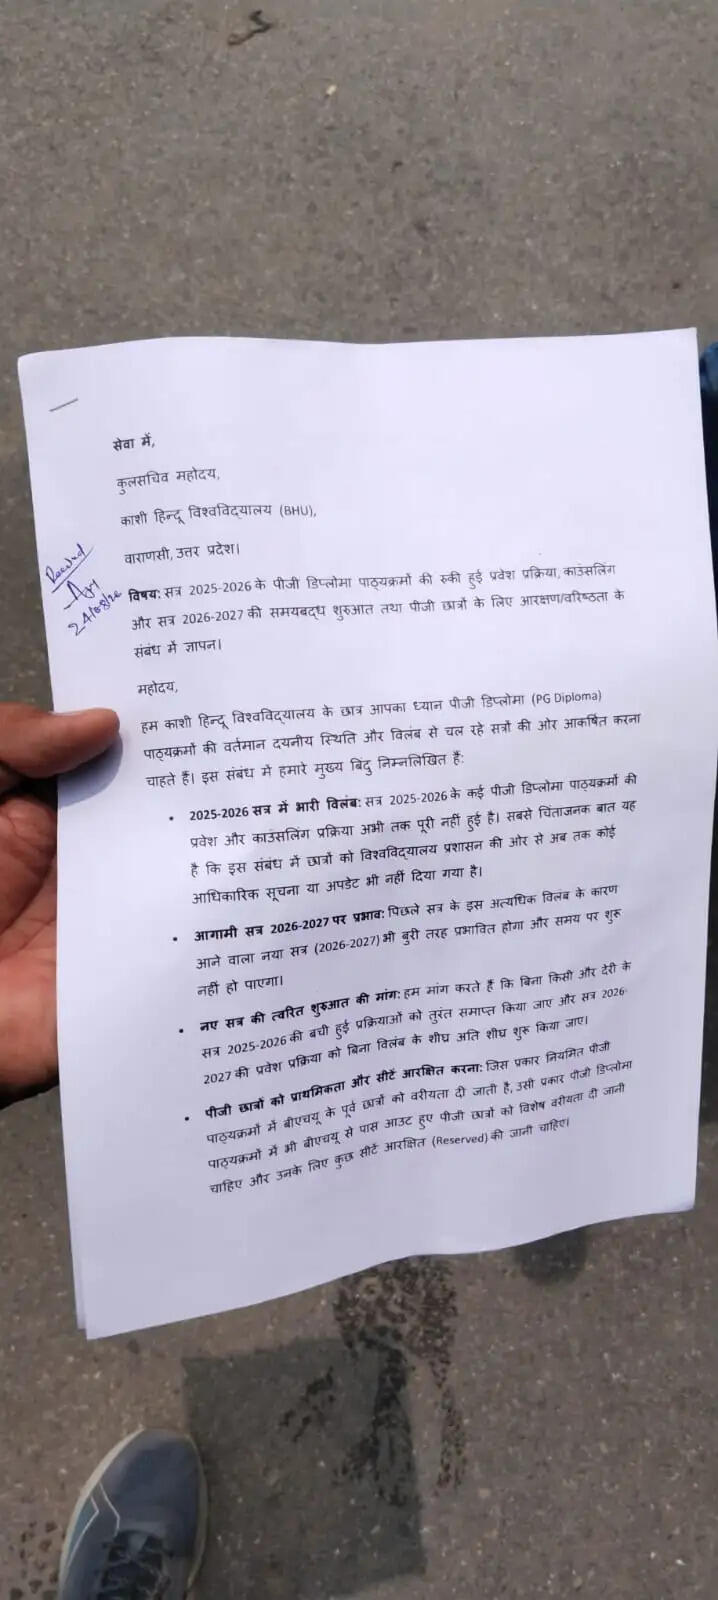 सेवा में,
कुलसचिव महोदय,
काशी हिन्दू विश्वविद्यालय (BHU),
वाराणसी, उत्तर प्रदेश।
Received
24/08/26
विषय: सत्र 2025-2026 के पीजी डिप्लोमा पाठ्यक्रमों की रुकी हुई प्रवेश प्रक्रिया, काउंसलिंग
और सत्र 2026-2027 की समयबद्ध शुरुआत तथा पीजी छात्रों के लिए आरक्षण/वरिष्ठता के
संबंध में ज्ञापन।
महोदय,
हम काशी हिन्दू विश्वविद्यालय के छात्र आपका ध्यान पीजी डिप्लोमा (PG Diploma)
पाठ्यक्रमों की वर्तमान दयनीय स्थिति और विलंब से चल रहे सत्रों की ओर आकर्षित करना
चाहते हैं। इस संबंध में हमारे मुख्य बिंदु निम्नलिखित हैं:
• 2025-2026 सत्र में भारी विलंब: सत्र 2025-2026 के कई पीजी डिप्लोमा पाठ्यक्रमों की
प्रवेश और काउंसलिंग प्रक्रिया अभी तक पूरी नहीं हुई है। सबसे चिंताजनक बात यह
है कि इस संबंध में छात्रों को विश्वविद्यालय प्रशासन की ओर से अब तक कोई
आधिकारिक सूचना या अपडेट भी नहीं दिया गया है।
• आगामी सत्र 2026-2027 पर प्रभाव: पिछले सत्र के इस अत्यधिक विलंब के कारण
आने वाला नया सत्र (2026-2027) भी बुरी तरह प्रभावित होगा और समय पर शुरू
नहीं हो पाएगा।
• नए सत्र की त्वरित शुरुआत की मांग: हम मांग करते हैं कि बिना किसी और देरी के
सत्र 2025-2026 की बची हुई प्रक्रियाओं को तुरंत समाप्त किया जाए और सत्र 2026-
2027 की प्रवेश प्रक्रिया को बिना विलंब के शीघ्र अति शीघ्र शुरू किया जाए।
• पीजी छात्रों को प्राथमिकता और सीटें आरक्षित करना: जिस प्रकार नियमित पीजी
पाठ्यक्रमों में बीएचयू के पूर्व छात्रों को वरीयता दी जाती है, उसी प्रकार पीजी डिप्लोमा
पाठ्यक्रमों में भी बीएचयू से पास आउट हुए पीजी छात्रों को विशेष वरीयता दी जानी
चाहिए और उनके लिए कुछ सीटें आरक्षित (Reserved) की जानी चाहिए।